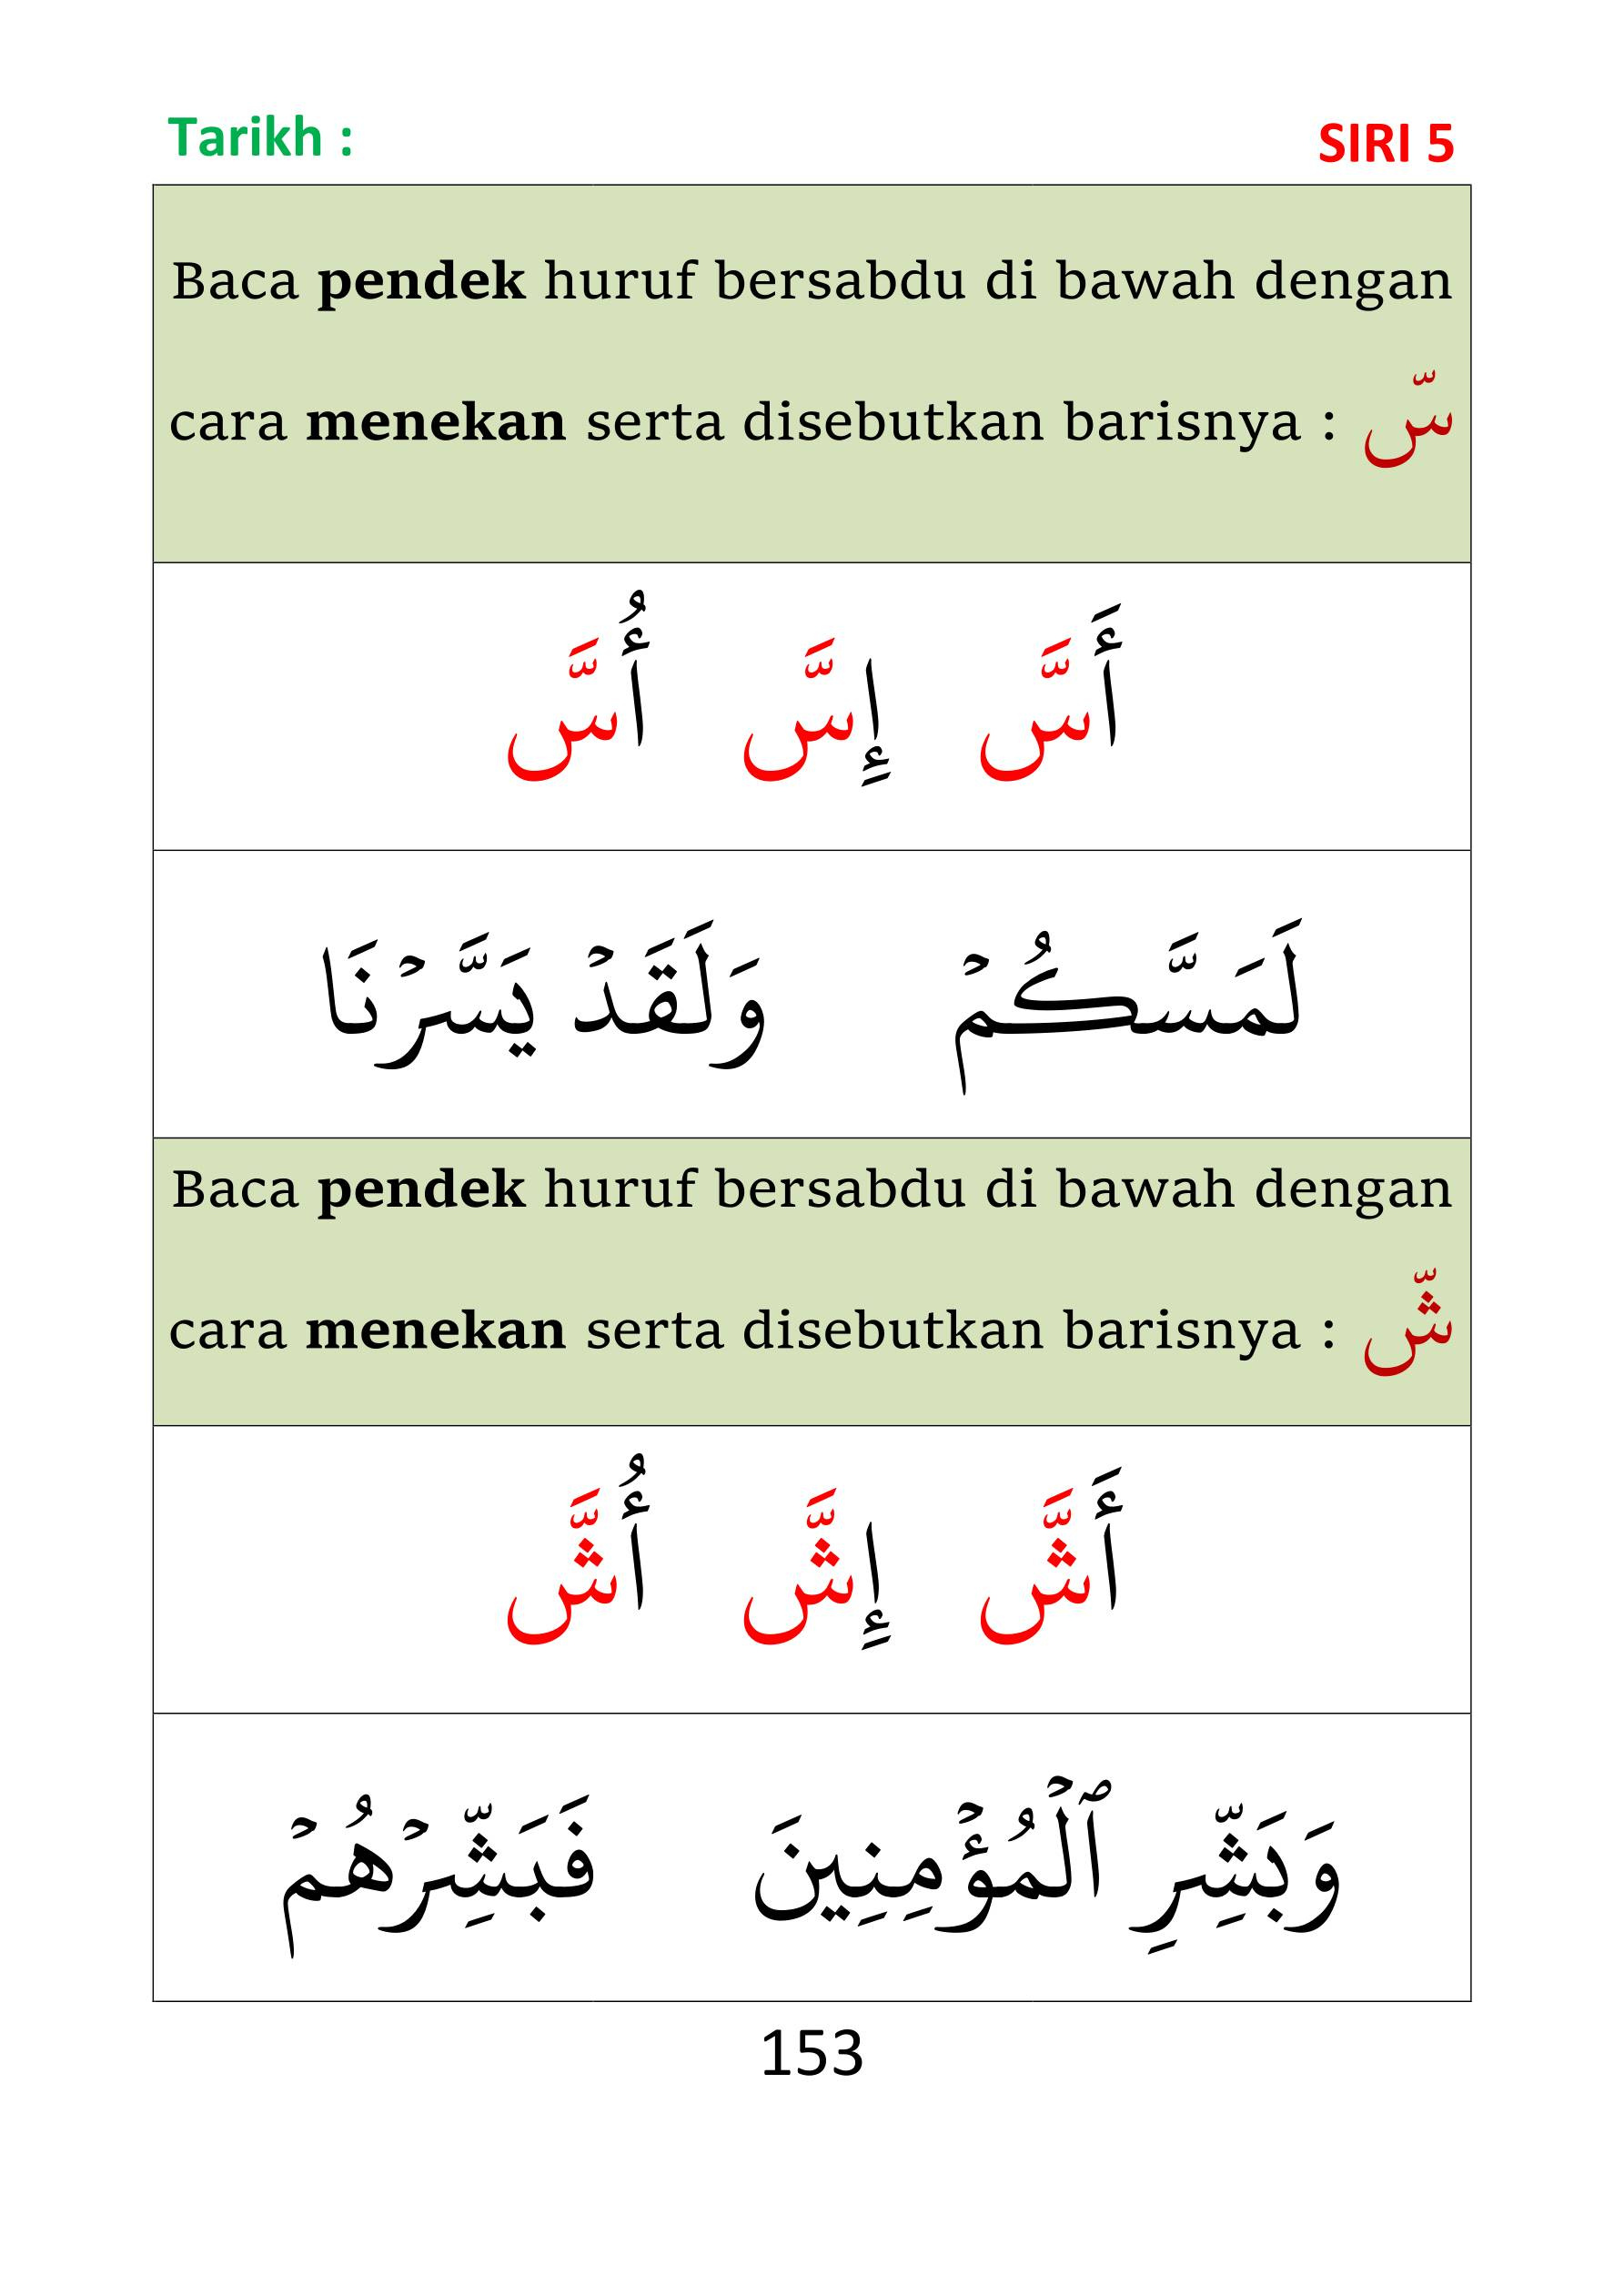 Tarikh :
SIRI 5
Baca pendek huruf bersabdu di bawah dengan
cara menekan serta disebutkan barisnya : سّ
أَسَّ إِسَّ أُسَّ
لَمَسَّكُمۡ وَلَقَدۡ يَسَّرۡنَا
Baca pendek huruf bersabdu di bawah dengan
cara menekan serta disebutkan barisnya : شّ
أَشَّ إِشَّ أُشَّ
وَبَشِّرِ ٱلۡمُؤۡمِنِينَ فَبَشِّرۡهُمۡ
153